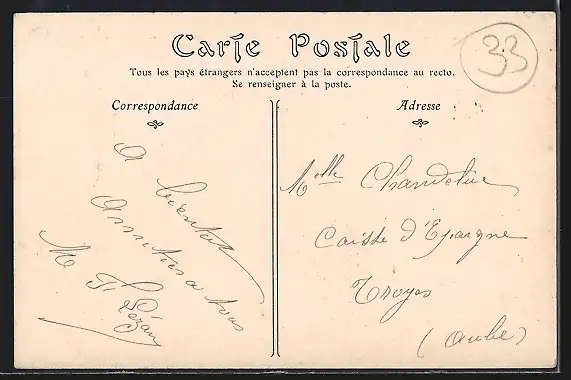 Carte Postale
33
Tous les pays étrangers n'acceptent pas la correspondance au recto.
Se renseigner à la poste.
Correspondance
Adresse
A bientot
Amitiés a tous
M
Melle
Caisse d'Epargne
Troyes
(Aube)